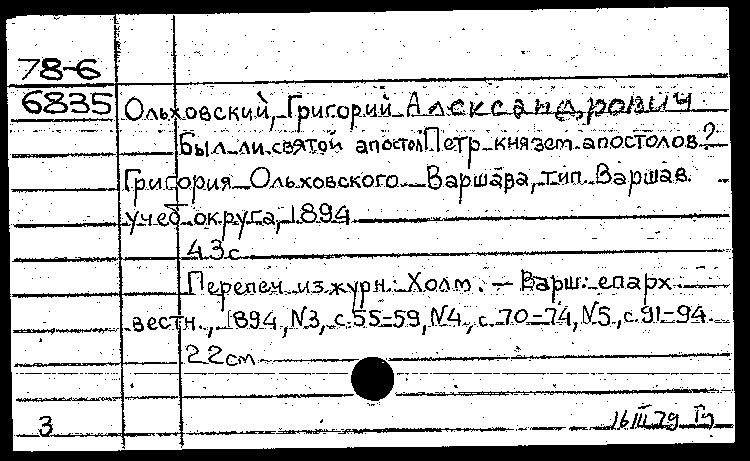 78-6
6835 Ольховский, Григорий Александрович
Был ли святой апостол Петр князем апостолов?
Григория Ольховского. Варшава, тип. Варшав.
учеб. округа, 1894
43 с.
Перепеч. из журн.: Холм. – Варш. епарх.
вестн., 1894, N3, с. 55-59, N4, с. 70-74, N5, с. 91-94.
22 см
3 16 III 79